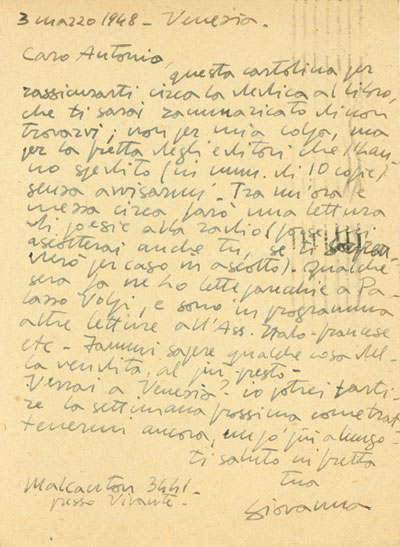 3 marzo 1948 - Venezia.
Caro Antonio,
questa cartolina per
rassicurarti circa la dedica al libro,
che ti sarai rammaricato di non
trovarvi, non per mia colpa, ma
per la fretta degli editori che l'han-
no spedito (in num. di 10 copie)
senza avvisarmi. Tra un'ora e
mezza circa farò una lettura
di poesie alla radio (forse mi
ascolterai anche tu, se ti
per caso in ascolto). Qualche
sera fa ne ho lette parecchie a Pa-
lazzo Volpi, e sono in programma
altre letture all'Ass. Italo-francese
etc - Fammi sapere qualche cosa del-
la vendita, al più presto -
Verrai a Venezia? io potrei parti-
re la settimana prossima come trat-
tenermi ancora, un po' più a lungo -
ti saluto in fretta
tua
Giovanna
Malcanton 3441 -
presso Vivante -